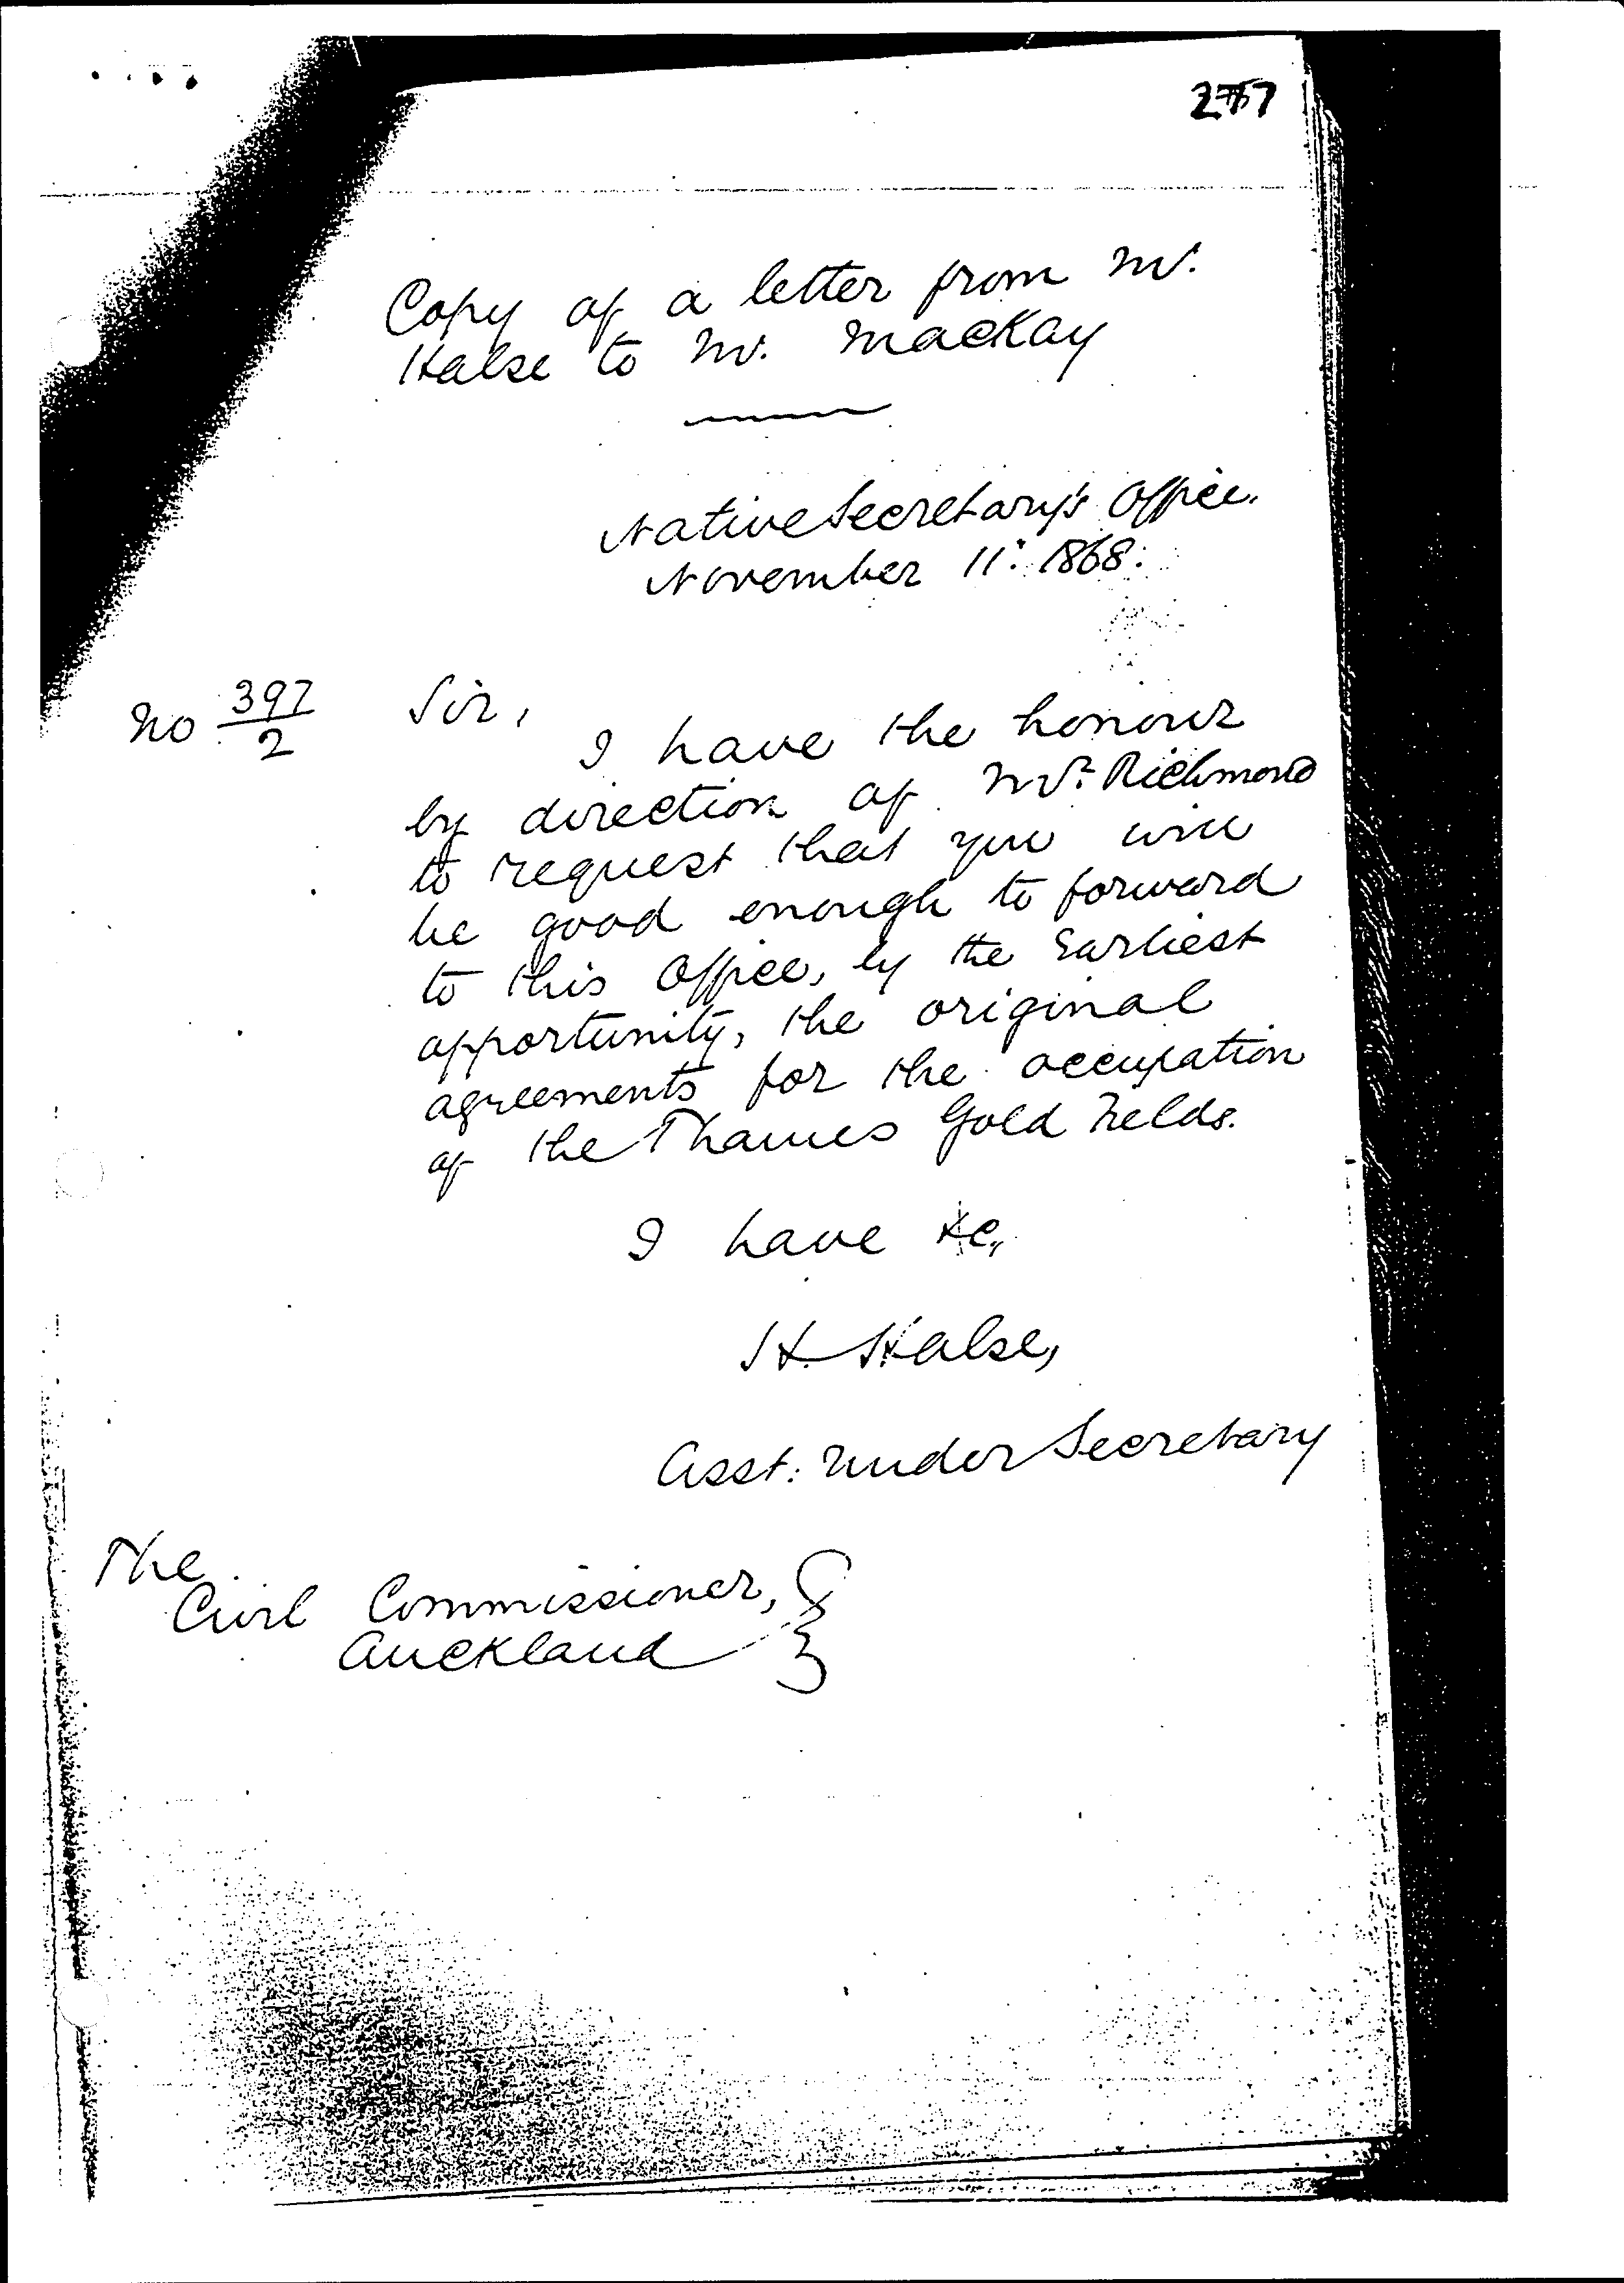 Copy of a letter from Mr.
Halse to Mr. Mackay
Native Secretary's Office.
November 11: 1868:
No 397/2
Sir,
I have the honour
by direction of Mr. Richmond
to request that you will
be good enough to forward
to this Office, by the Earliest
opportunity, the original
agreements for the occupation
of the Thames Gold Fields.
I have &c,,
H. Halse,
Asst: Under Secretary
The
Civil Commissioner,
Auckland